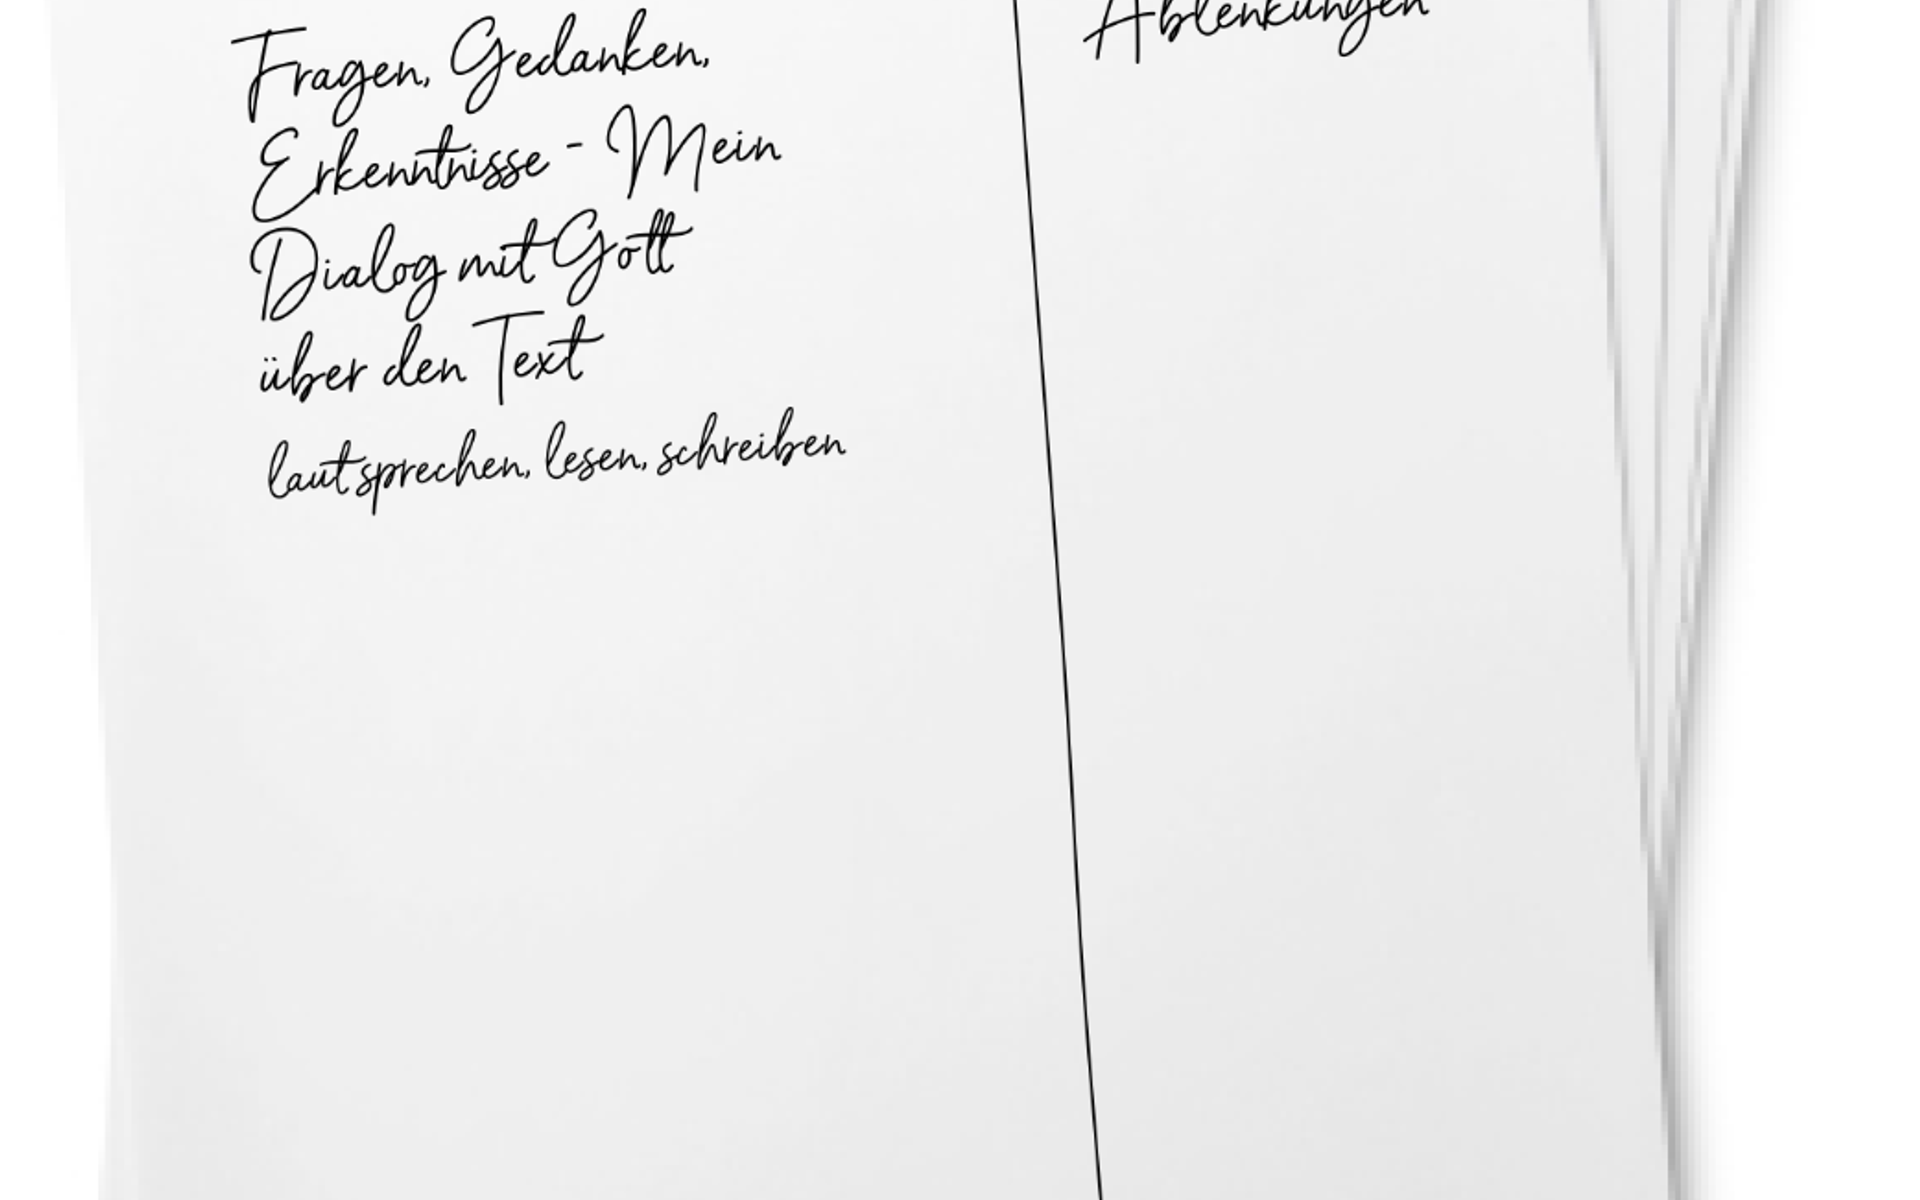 Fragen, Gedanken,
Erkenntnisse - Mein
Dialog mit Gott
über den Text
laut sprechen, lesen, schreiben
Ablenkungen